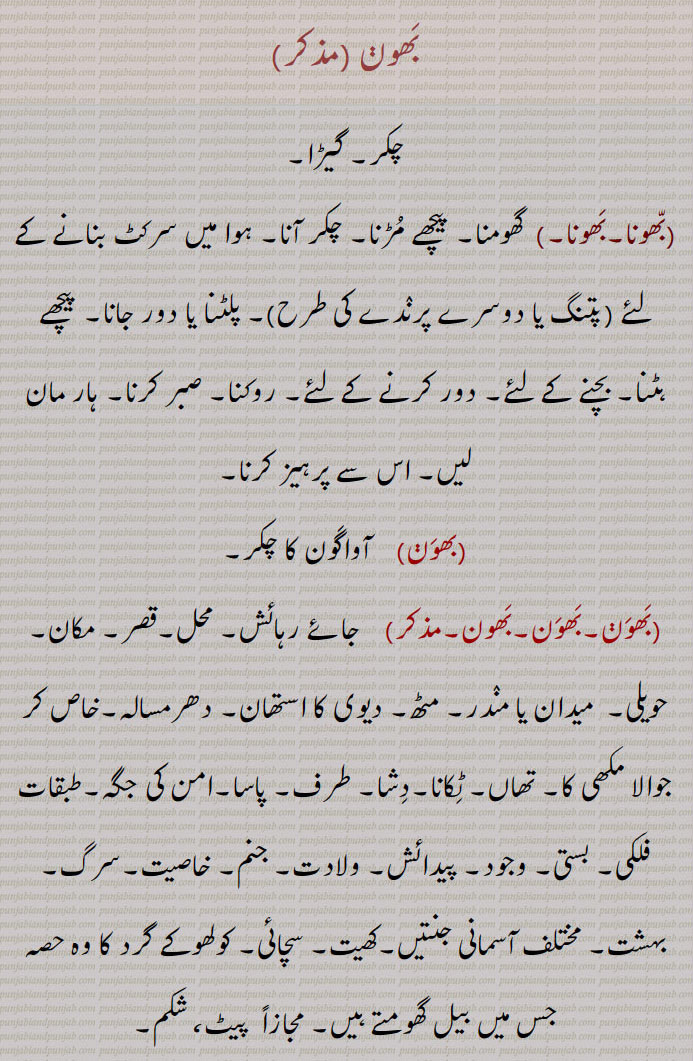 بَھوݨ (مذکر)
چکر۔ گیڑا۔
(بّھونا۔بَھونا۔) گھومنا۔ پیچھے مُڑنا۔ چکر آنا۔ ہوا میں سرکٹ بنانے کے
لئے (پتنگ یا دوسرے پرنْدے کی طرح)۔ پلٹنا یا دور جانا۔ پیچھے
ہٹنا۔ بچنے کے لئے۔ دور کرنے کے لئے۔ روکنا۔ صبر کرنا۔ ہار مان
لیں۔ اس سے پرہیز کرنا۔
(بھوَݨ) آواگَون کا چکر۔
(بَھوَݨ۔بَھوَن۔بَھون۔مذکر) جائے رہائش۔ محل۔قصر۔ مکان۔
حویلی۔ میدان یا منْدر۔ مٹھ۔ دیوی کا استھان۔ دھرمسالہ۔خاص کر
جوالا مکھی کا۔ تھاں۔ ٹِکانا۔دِشا۔ طرف۔ پاسا۔امن کی جگہ۔طبقات
فلکی۔ بستی۔ وجود۔ پیدائش۔ ولادت۔ جنم۔ خاصیت۔سرگ۔
بہشت۔ مختلف آسمانی جنتیں۔کھیت۔ سچائی۔ کولھوکے گرد کا وہ حصہ
جس میں بیل گھومتے ہیں۔ مجازاً پیٹ، شکم۔